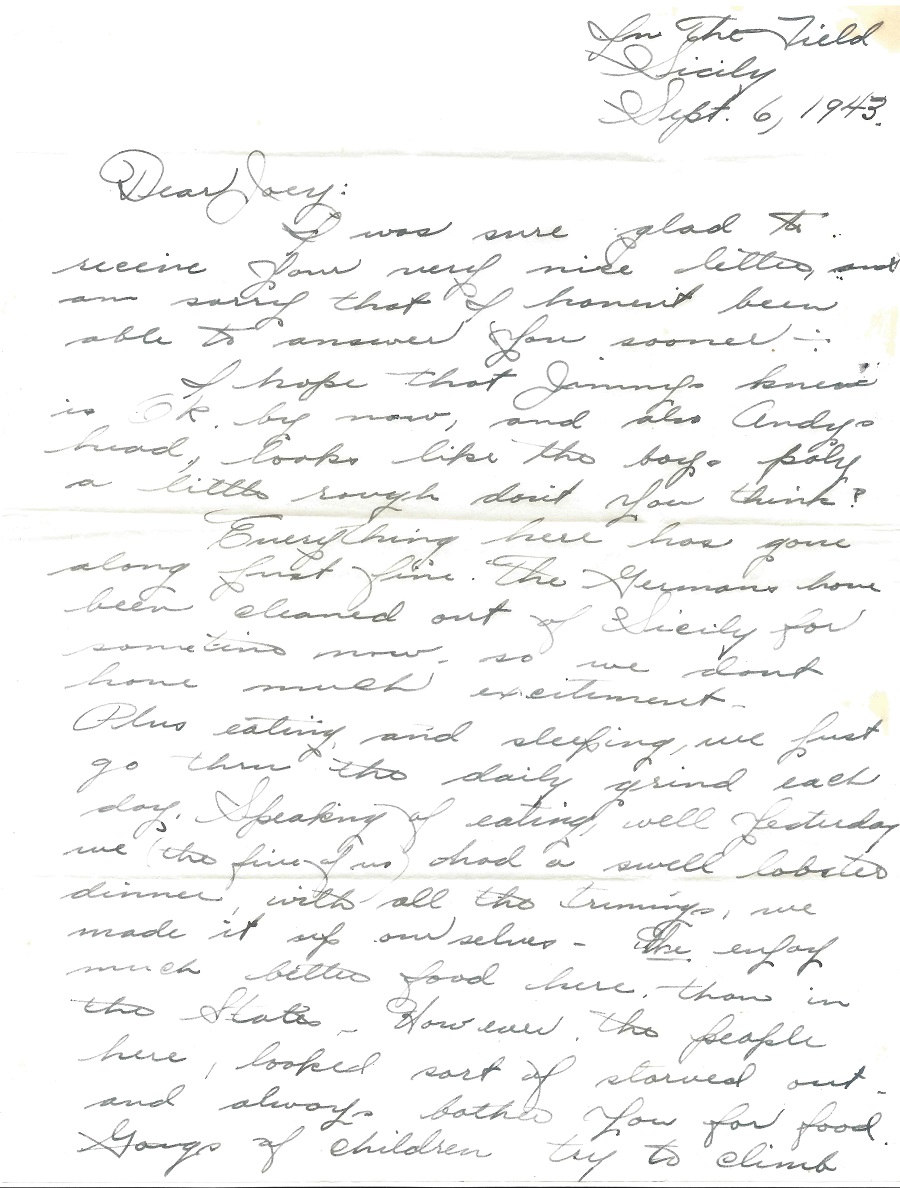 In The Field
Sicily
Sept. 6, 1943.
Dear Joey:
I was sure glad to
receive your very nice letter, and
am sorry that I haven't been
able to answer you sooner -
I hope that Jimmys knew
is Ok. by now, and also Andys
head, Looks like the boys paly
a little rough don't you think?
Everything here has gone
along just fine. The Germans have
been cleaned out of Sicily for
sometime now, so we dont
have much excitiment -
Plus eating, and sleeping, we just
go thru the daily grind each
day. Speaking of eating, well yesterday
we (the five of us) had a swell lobster
dinner, with all the trimings, we
made it up ourselves - We enjoy
much better food here, than in
the States - However, the people
here, looked sort of starved out -
and always bother you for food.
Gangs of children try to climb